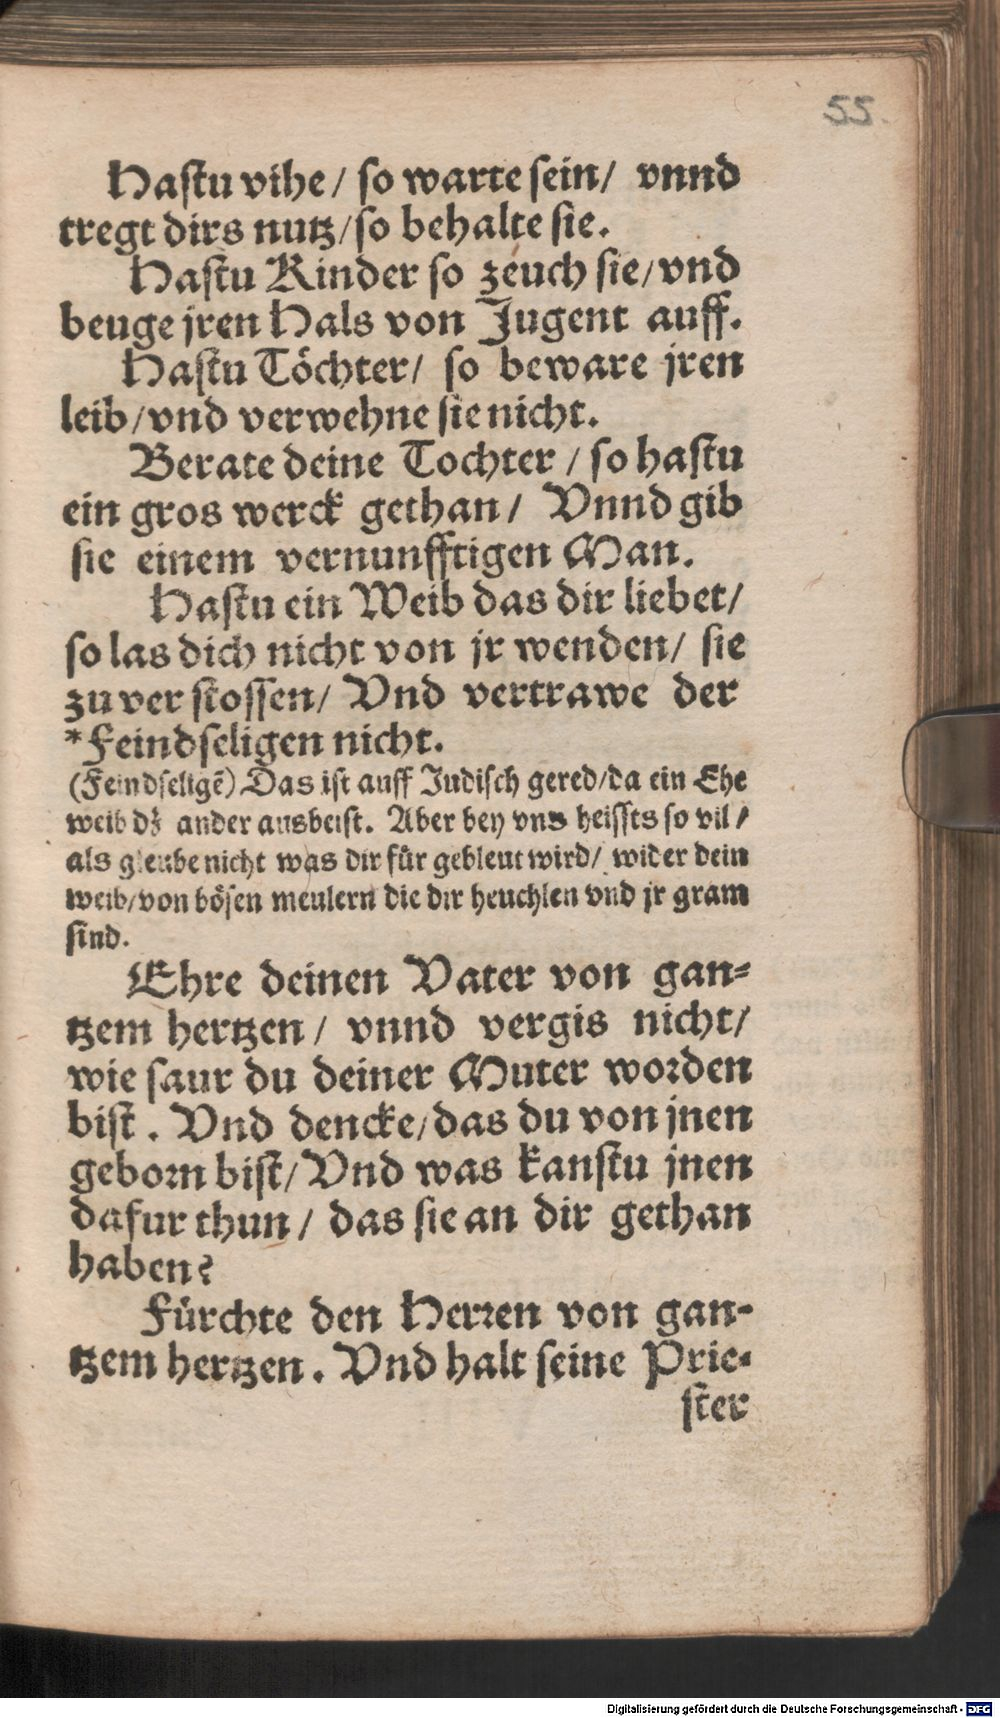 55.
Hastu vihe / so warte sein / vnnd
tregt dirs nutz / so behalte sie.
Hastu Kinder so zeuch sie / vnd
beuge jren Hals von Jugent auff.
Hastu Töchter / so beware jren
leib / vnd verwehne sie nicht.
Berate deine Tochter / so hastu
ein gros werck gethan / Vnnd gib
sie einem vernunfftigen Man.
Hastu ein Weib das dir liebet /
so las dich nicht von jr wenden / sie
zu ver stossen / Vnd vertrawe der
*Feindseligen nicht.
(Feindseligē) Das ist auff Judisch gered / da ein Ehe
weib dz ander ausbeist. Aber bey vns heissts so vil /
als gleube nicht was dir für gebleut wird / wider dein
weib / von bösen meulern die dir heuchlen vnd jr gram
sind.
Ehre deinen Vater von gan-
tzem hertzen / vnnd vergis nicht /
wie saur du deiner Muter worden
bist. Vnd dencke / das du von jnen
geborn bist / Vnd was kanstu jnen
dafur thun / das sie an dir gethan
haben?
Fürchte den Herren von gan-
tzem hertzen. Vnd halt seine Prie-
ster
Digitalisierung gefördert durch die Deutsche Forschungsgemeinschaft - DFG